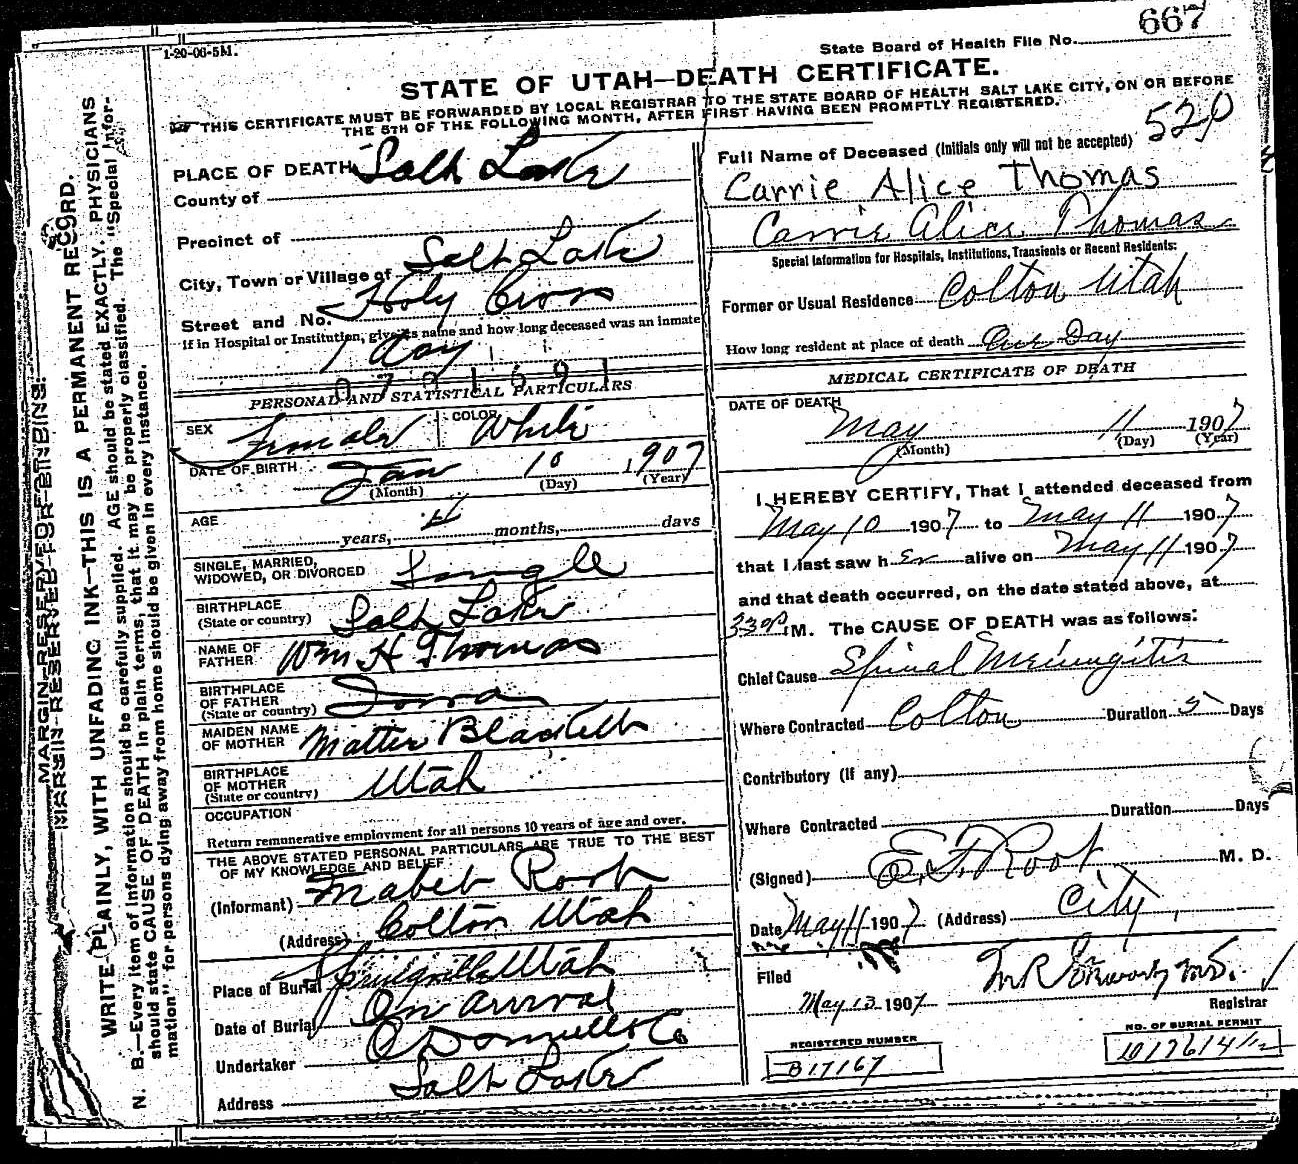 1-20-06-5M.
667
State Board of Health File No.
STATE OF UTAH—DEATH CERTIFICATE.
THIS CERTIFICATE MUST BE FORWARDED BY LOCAL REGISTRAR TO THE STATE BOARD OF HEALTH SALT LAKE CITY, ON OR BEFORE
THE 5TH OF THE FOLLOWING MONTH, AFTER FIRST HAVING BEEN PROMPTLY REGISTERED.
MARGIN RESERVED FOR BINDING.
WRITE PLAINLY, WITH UNFADING INK—THIS IS A PERMANENT RECORD.
N. B.—Every item of information should be carefully supplied. AGE should be stated EXACTLY. PHYSICIANS
should state CAUSE OF DEATH in plain terms, that it may be properly classified. The "Special Infor-
mation" for persons dying away from home should be given in every instance.
PLACE OF DEATH Salt Lake
County of
Precinct of
City, Town or Village of Salt Lake
Street and No. Holy Cross
If in Hospital or Institution, give its name and how long deceased was an inmate
1 day
PERSONAL AND STATISTICAL PARTICULARS
SEX Female COLOR White
DATE OF BIRTH Jan 10 1907
(Month) (Day) (Year)
AGE years, 4 months, days
SINGLE, MARRIED,
WIDOWED, OR DIVORCED Single
BIRTHPLACE
(State or country) Salt Lake
NAME OF
FATHER Wm H Thomas
BIRTHPLACE
OF FATHER
(State or country) Iowa
MAIDEN NAME
OF MOTHER Mattie Blackett
BIRTHPLACE
OF MOTHER
(State or country) Utah
OCCUPATION
Return remunerative employment for all persons 10 years of age and over.
THE ABOVE STATED PERSONAL PARTICULARS ARE TRUE TO THE BEST
OF MY KNOWLEDGE AND BELIEF
(Informant) Mabel Root
(Address) Colton Utah
Place of Burial Springville Utah
Date of Burial On arrival
Undertaker O'Donnell & Co
Address Salt Lake
520
Full Name of Deceased (Initials only will not be accepted)
Carrie Alice Thomas
Carrie Alice Thomas
Special Information for Hospitals, Institutions, Transients or Recent Residents:
Former or Usual Residence Colton Utah
How long resident at place of death One Day
MEDICAL CERTIFICATE OF DEATH
DATE OF DEATH
May 11 1907
(Month) (Day) (Year)
I HEREBY CERTIFY, That I attended deceased from
May 10 1907 to May 11 1907
that I last saw her alive on May 11 1907
and that death occurred, on the date stated above, at
330P M. The CAUSE OF DEATH was as follows:
Chief Cause Spinal Meningitis
Where Contracted Colton Duration 5 Days
Contributory (If any)
Where Contracted Duration Days
(Signed) E.F. Root M. D.
Date May 11 1907 (Address) City
Filed
May 13 1907
Registrar
REGISTERED NUMBER
B17167
NO. OF BURIAL PERMIT